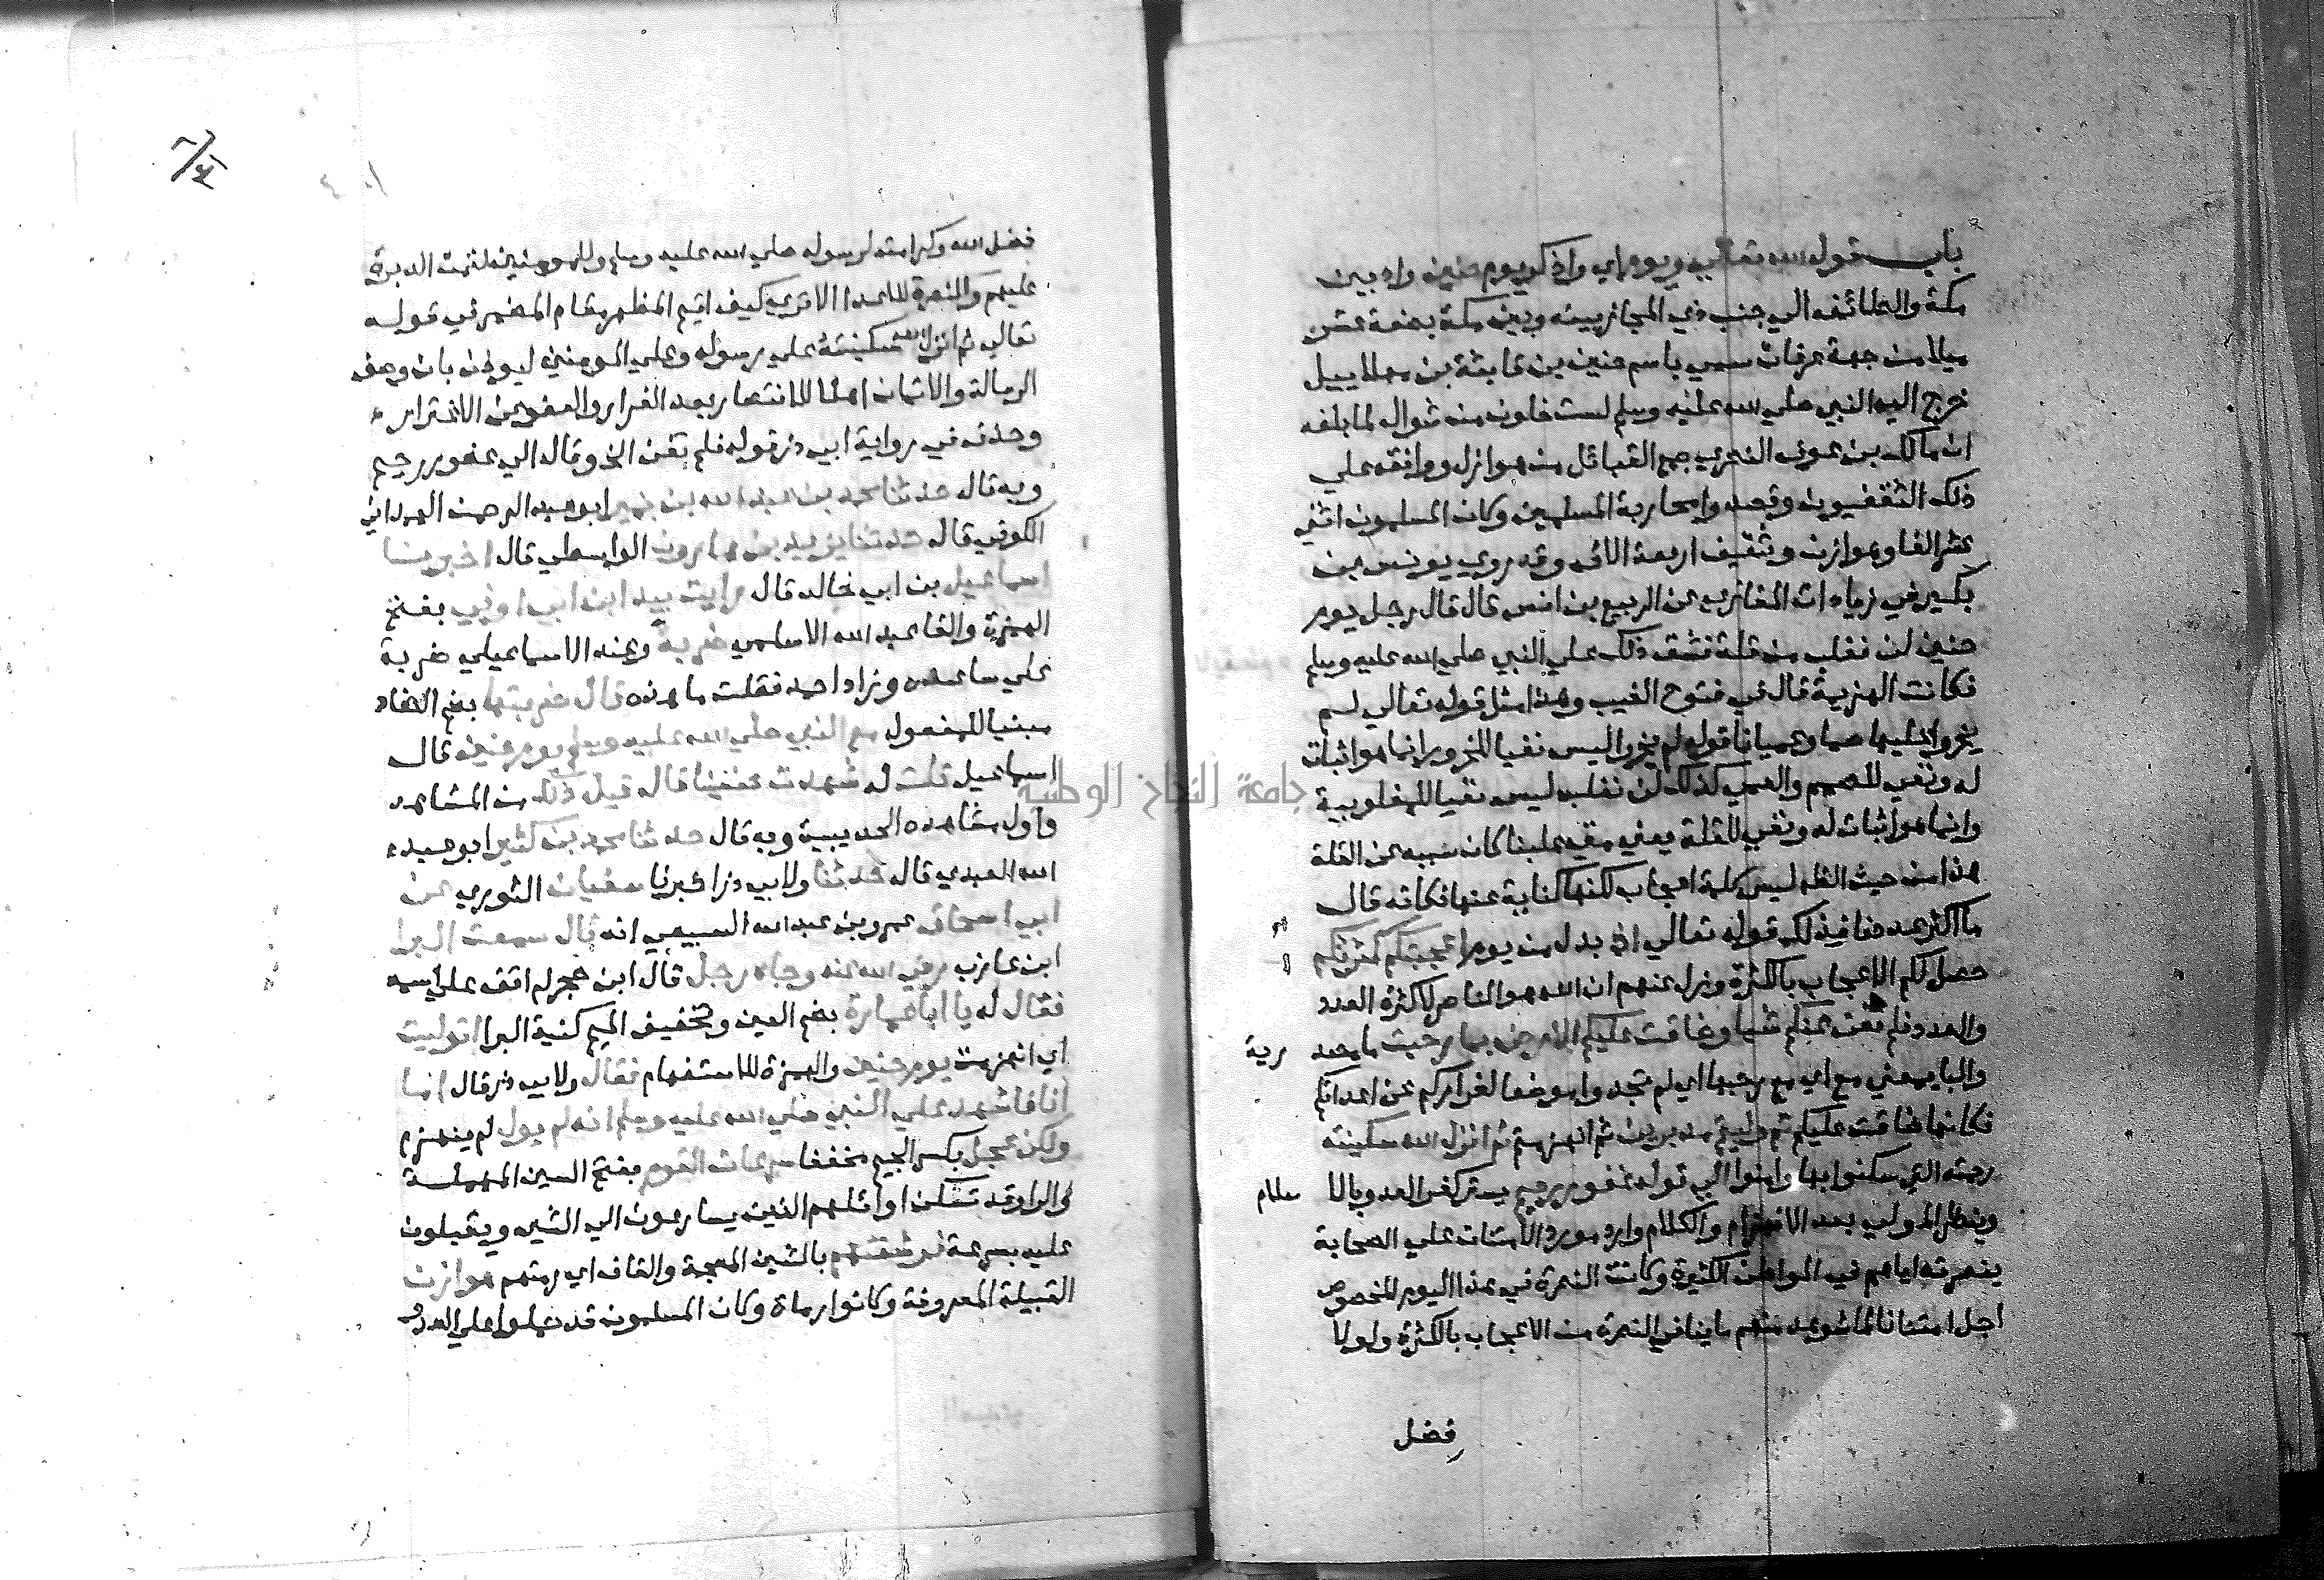 باب قول الله تعالي ويوم اي واذكر يوم حنين واد بين
مكة والطائف الي جنب ذي المجاز بينه وبين مكة بضعة عشر
ميلا من جهة عرفات سمي باسم حنين بن قابثة بن مهلاييل
خرج اليه النبي صلي الله عليه وسلم لست خلون من شوال لما بلغه
ان مالك بن عوف النصري جمع القبائل من هوازن ووافقه علي
ذلك الثقفيون وقصدوا محاربة المسلمين وكان المسلمون اثني
عشر الفا وهوازن وثقيف اربعة الاف وقد روي يونس بن
بكير في زيادات المغازي عن الربيع بن انس قال قال رجل يوم
حنين لن نغلب من قلة فشق ذلك علي النبي صلي الله عليه وسلم
فكانت الهزيمة قال في فتوح الغيب وهذا مثل قوله تعالي لم
يخروا عليها صما وعميانا قوله لم يخروا ليس نفيا للخرور انما هو اثبات
له ونفي للصمم والعمي كذلك لن نغلب ليس نفيا للمغلوبية
وانما هو اثبات له ونفي للقلة يعني متي غلبنا كان سببه عن القلة
هذا من حيث الظاهر ليس كلمة اعجاب لكنها كناية عنها فكانه قال
ما اكثر عددنا فذلك قوله تعالي اذ بدل من يوم اعجبتكم كثرتكم
حصل لكم الاعجاب بالكثرة وزل عنهم ان الله هو الناصر لا كثرة العدد
والعدد فلم تغن عنكم شيا وضاقت عليكم الارض بما رحبت ما مصدرية
والبا بمعني مع اي مع رحبها اي لم تجدوا موضعا لفراركم عن اعدائكم
فكانها ضاقت عليكم ثم وليتم مدبرين ثم انهزمتم ثم انزل الله سكينته
رحمته التي سكنوا بها وامنوا الي قوله غفور رحيم يستر كفر العدو بالاسلام
وينصر المولي بعد الانهزام والكلام وارد مورد الامتنان علي الصحابة
بنصرته اياهم في المواطن الكثيرة وكانت النصرة في هذا اليوم المخصوص
اجل امتنانا لما شوهد منهم ما ينافي النصرة من الاعجاب بالكثرة ولولا
فضل
فضل الله وكرامته لرسوله صلي الله عليه وسلم وللمومنين لتمت الدبرة
عليهم والنصرة للاعدا الا تري كيف اقيم المظهر مقام المضمر في قوله
تعالي ثم انزل الله سكينته علي رسوله وعلي المومنين ليوذن بان وصف
الرسالة والايمان اهلا للانتصار بعد الفرار والعفو عن الاغترار
وحذف في رواية ابي ذر قوله فلم تغن الخ وقال الي غفور رحيم
وبه قال حدثنا محمد بن عبد الله بن نمير ابو عبد الرحمن الهمداني
الكوفي قال حدثنا يزيد بن هارون الواسطي قال اخبرنا
اسماعيل بن ابي خالد قال رايت بيد ابن ابي اوفي بفتح
الهمزة والفا عبد الله الاسلمي ضربة وعند الاسماعيلي ضربة
علي ساعده وزاد احمد فقلت ما هذه قال ضربتها بضم الضاد
مبنيا للمفعول مع النبي صلي الله عليه وسلم يوم حنين قال
اسماعيل قلت له شهدت حنينا قال قبل ذلك من المشاهد
واول مشاهده الحديبية وبه قال حدثنا محمد بن كثير ابو عبد
الله العبدي قال حدثنا ولابي ذر اخبرنا سفيان الثوري عن
ابي اسحاق عمرو بن عبد الله السبيعي انه قال سمعت البرا
ابن عازب رضي الله عنه وجاه رجل قال ابن حجر لم اقف علي اسمه
فقال له يا ابا عمارة بضم العين وتخفيف الميم كنية البرا اتوليت
اي انهزمت يوم حنين والهمزة للاستفهام فقال ولابي ذر قال اما
انا فاشهد علي النبي صلي الله عليه وسلم انه لم يول لم ينهزم
ولكن عجل بكسر الجيم مخففا سرعان القوم بفتح السين المهملة
والرا وقد تسكن اوائلهم الذين يسارعون الي الشي ويقبلون
عليه بسرعة فرشقتهم بالشين المعجمة والقاف اي رمتهم هوازن
القبيلة المعروفة وكانوا رماة وكان المسلمون قد حملوا علي العدو
جامعة النجاح الوطنية